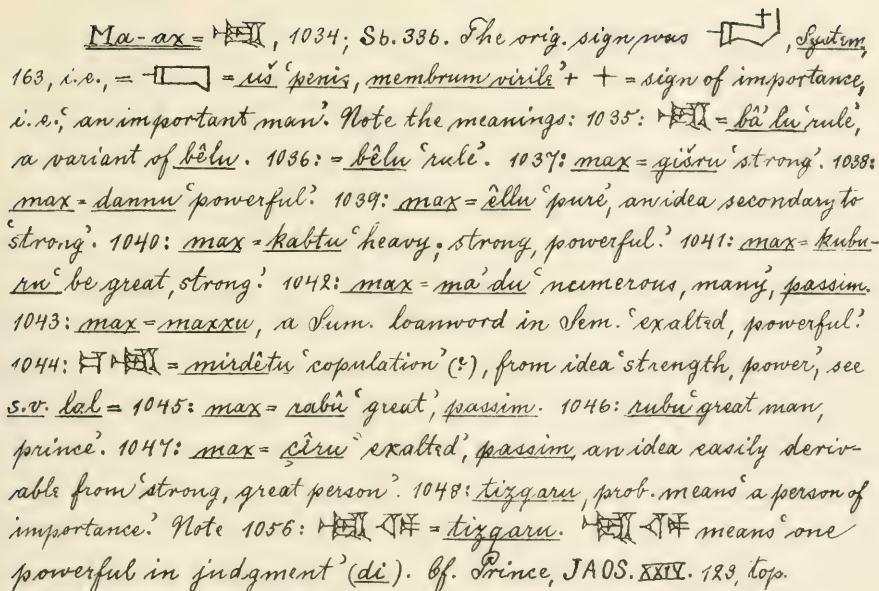 Ma-ax = 𒈤, 1034; Sb. 336. The orig. sign was , System,
163, i.e., = = uš 'penis, membrum virile' + + = sign of importance,
i.e., 'an important man'. Note the meanings: 1035: 𒈤 = bâ'lu 'rule',
a variant of bêlu. 1036: = bêlu 'rule'. 1037: max = gišru 'strong'. 1038:
max = dannu 'powerful'. 1039: max = êllu 'pure', an idea secondary to
'strong'. 1040: max = kabtu 'heavy; strong, powerful'. 1041: max = kubu-
ru 'be great, strong'. 1042: max = ma'du 'numerous, many', passim.
1043: max = maxxu, a Sum. loanword in Sem. 'exalted, powerful'.
1044: 𒈤 = mirdêtu 'copulation' (?), from idea 'strength, power', see
s.v. lal = 1045: max = rabû 'great', passim. 1046: rubû 'great man,
prince'. 1047: max = çîru 'exalted', passim, an idea easily deriv-
able from 'strong, great person'. 1048: tizqaru, prob. means 'a person of
importance'. Note 1056: 𒈤 𒁲 = tizqaru. 𒈤 𒁲 means 'one
powerful in judgment' (di). Cf. Prince, JAOS. XXIV. 123, top.